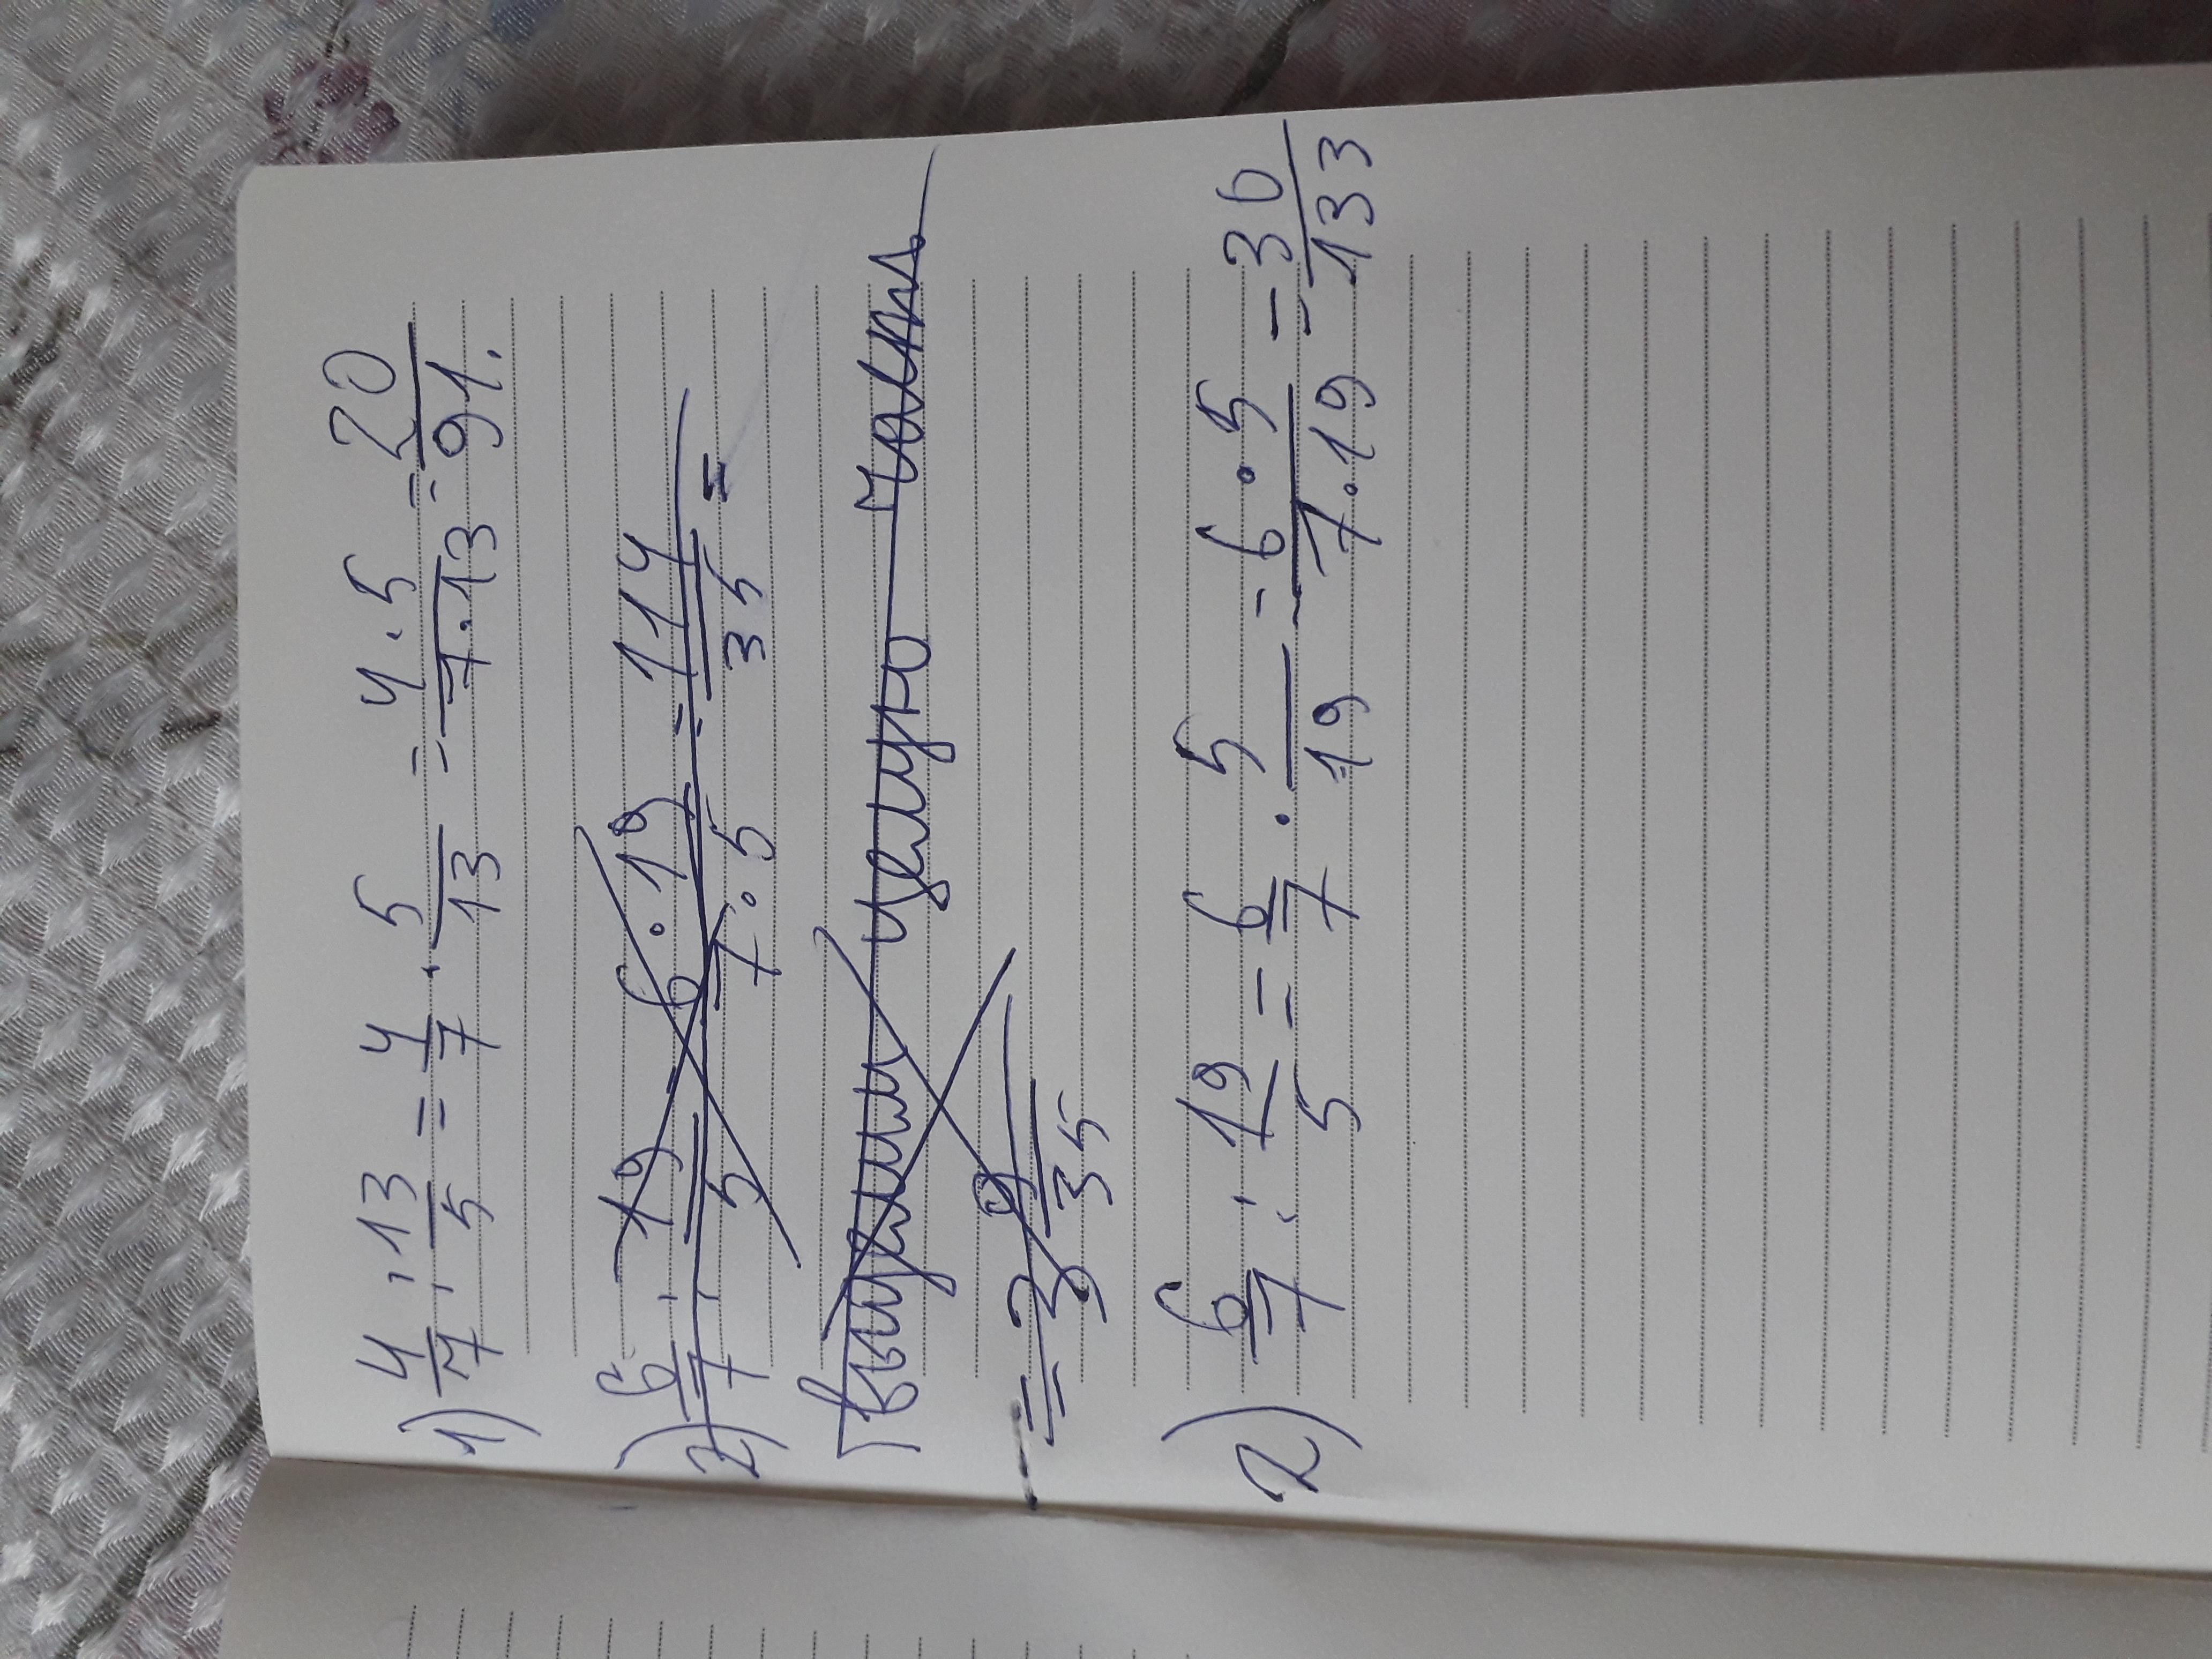 1) 4/7 : 13/5 = 4/7 · 5/13 = 4·5/7·13 = 20/91.
2) 6/7 : 19/5 = 6·19/7·5 = 114/35 =
выделим целую часть
= 3 9/35
2) 6/7 : 19/5 = 6/7 · 5/19 = 6·5/7·19 = 30/133